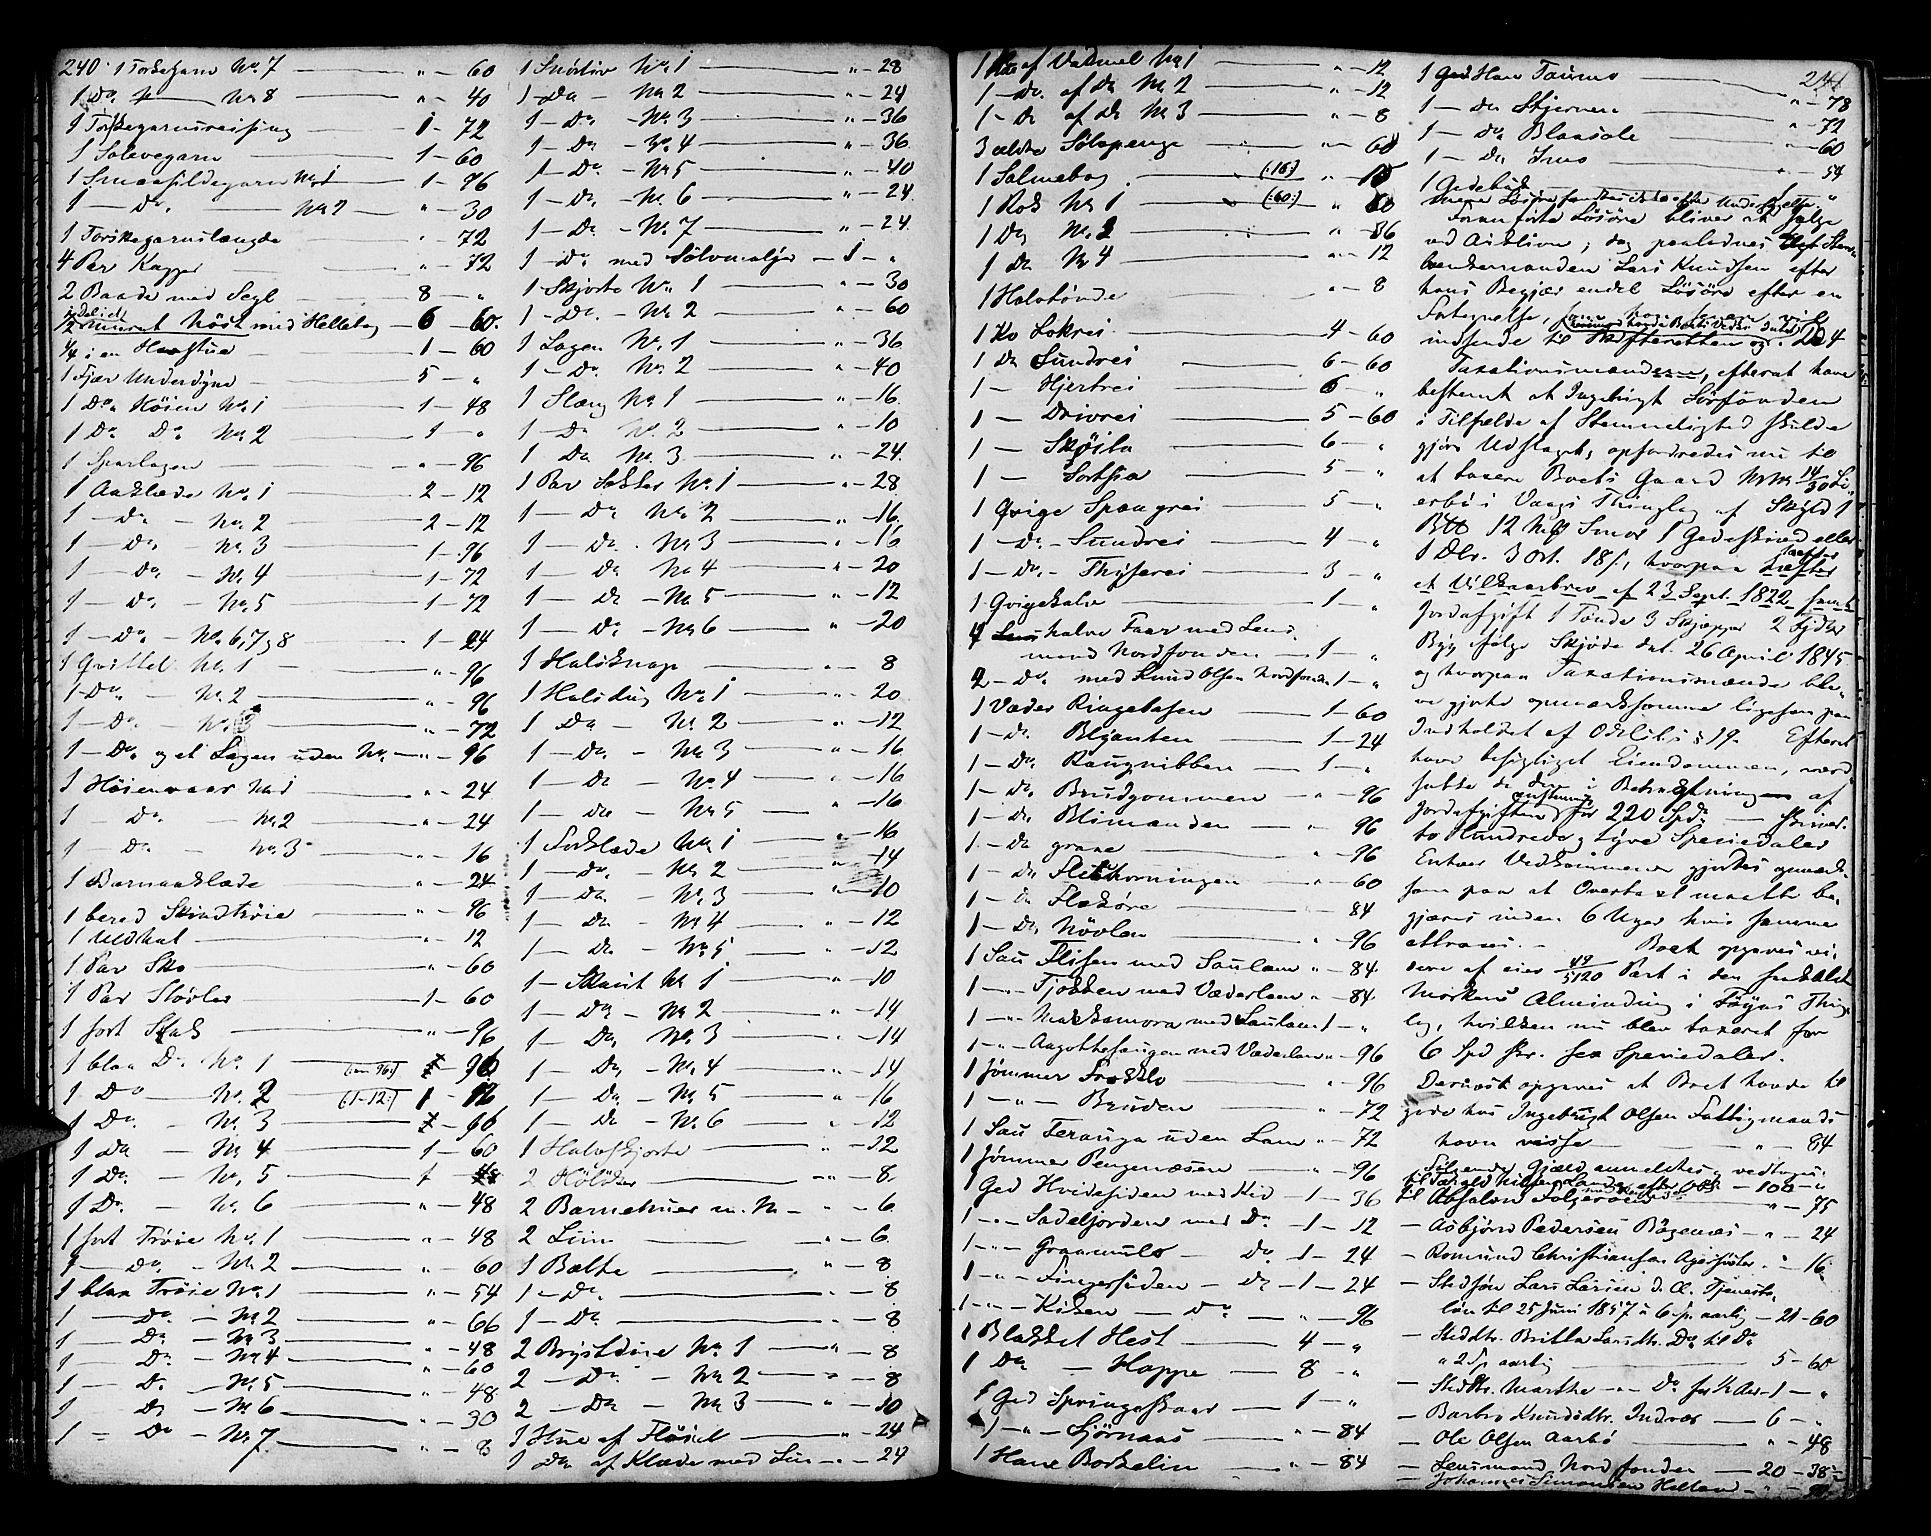 240. 1 Torskegarn No. 7 — " — 60
1 Do. — No 8 — " — 40
1 Torskegarnsreising — 1 — 72
1 — 1 — 60
1 Smaasildegarn No 1 — 1 — 96
1 — Do. — No 2 — " — 30
1 Torskegarnslængde " 72
4 Par Kagger — " — 72
2 Baade med Segl 8 — "
1/2 Nøst med Hellelag — 6 — 60.
1/4 i en — 1 — 60
1 Fjær Underdyne — 5 — "
1 Do. Høien No. 1 — 1 — 48
1 Do Do No 2 — 1 — "
1 Sparlagen — " — 96
1 Aaklæde No. 1 — 2 — 12
1 — Do — No. 2 — 2 — 12
1 — Do. No. 3 — 1 — 96
1 — Do. — No. 4 — 1 — 72
1 — Do. — No. 5 — 1 — 72
1 — Do. — No. 6, 7 & 8 — 1 — 24
1 Qvittel No. 1 — " — 96
1 — Do. — No. 2 — " — 96
1 — Do. — No. 3 — " — 72
1 — Do. og et Lagen uden No. — " — 96
1 Høienvaar No 1 — " — 24
1 — Do. — No 2 — " — 24
1 — Do — No. 3 — " — 16
1 Barnaaklæde — " — 24
1 bered Skindtrøie — " — 96
1 Uldhat — " 12
1 Par Sko — " — 60
1 Par Støvler — 1 — 60
1 sort Stak — " — 96
1 blaa Do No. 1 — 96
1 Do — No. 2 (:1-12:) 1 — 12
1 Do. — No. 3 — 96
1 Do — No 4 — 1 — 60
1 Do. — No. 5
1 Do. — No. 6 — " — 48
1 sort Trøie No. 1 — " — 48
1 — Do. — No 2 — " — 60
1 blaa Trøie No. 1 — " — 54
1 — Do. — No 2 — " — 66
1 — Do — No 3 — " — 48
1 — Do — No 4 — " — 60
1 — Do. — No. 5 — " — 48
1 — Do — No 6 — " — 30
1 — Do — No 7. — " — 8
1 Snørliv No. 1 — " — 28
1 — Do — No. 2 — " — 24
1 — Do — No. 3 — " — 36
1 — Do — No. 4 — " — 36
1 — Do — No 5 — " — 40
1 — Do — No. 6 — " — 24
1 — Do — No. 7 — " — 24
1 — Do med Sølvmaljer — 1 — "
1 Skjorte No. 1 — " — 30
1 — Do. — No. 2 — " — 60
1 Lagen No. 1 — " — 36
1 — Do. No. 2 — " — 40
1 No 1 — " — 16
1 — Do No. 2 — " — 10
1 Do No. 3 — " — 24
1 Par Sokker No. 1 — " — 28
1 — Do No. 2 — " — 16
1 — Do. No 3 — " — 16
1 — Do No 4 — " — 20
1 — Do — No 5 — " — 12
1 — Do. — No 6 — " — 20
1 Halsknap — " 8
1 Halsdug No. 1 — " — 20
1 Do — No. 2 — " — 12
1 — Do. — No 3 — " — 16
1 — Do — No. 4 — " — 16
1 — Do — No. 5 — " — 16
1 Forklæde No. 1 — " — 16
1 — Do. — No. 2 — " — 14
1 — Do. — No. 3 — " — 10
1 — Do — No 4 — " — 12
1 — Do — No. 5 — " — 12
1 — Skaut No 1 — " — 10
1 — Do — No 2 — " — 14
1 — Do. No 3 — " — 14
1 — Do — No. 4 — " — 14
1 — Do — No. 5 — " — 16
1 — Do — No. 6 — " 12
1 Halvskjorte — " 12
2 — " — 8
2 Barnehuer u. No — " — 6
2 — " — 6
1 Bælte — " — 8
1 — Do — " — 8
1 — Do — " — 8
2 Brystduge No. 1 — " — 8
2 — Do — No 2 — " — 8
2 — Do — No 3 — " — 10
1 Hue af Fløiel — " — 24
1 Do af Klæde med — " — 24
1 Hue af Vadmel No 1 — " — 12
1 — Do. af Do No 2 — " — 12
1 — Do af Do No 3 — " — 8
3 ældre " 60
1 Salmebog (:16:) "
1 Rok No 1 (:60:) " 60
1 Do No. 2 — " — 36
1 Do No 4 — " — 12
1 Halvtønde — " — 8
1 Ko Lokrei — 4 — 60
1 Do Sundrei — 6 — 60
1 — Hjertrei — 6 — "
1 — Drivrei — 5 — 60
1 — Skøita — 6 — "
1 — Sortsia — 5 — "
1 Qvige Spangrei — 5 — "
1 — Do — Sundrei — 4 — "
1 — Do. — — 3 — "
1 Qvigekalv — 1 — "
4 halve Faar med Lens
mand Nordfonden — 1 — "
2 — Do. med Knud Olsen Nordfonden 1 — "
1 Væder Ringebassen — 1 — 60
1 — Do. Blyanten — 1 — 24
1 — Do. Raugnibben — 1 — "
1 — Do. Brudgommen — " — 96
1 — Do. Blimanden — " — 96
1 — Do graae — " — 96
1 — Do — " — 60
1 — Do — 84
1 — Do Nøvlen — " — 96
1 Sau Flisen med Saulam " — 84
1 — " — Tjokken med Væderlam " — 84
1 — " — med Saulam 1 — "
1 — " — med Væderlam " — 96
1 Jømmer — " — 96
1 — " — Bruden — " — 72
1 Sau uden Lam " — 72
1 Jømmer Pengenæsen — " — 96
1 Ged Hvidesiden med Kid — 1 — 36
1 — " — Sadeljorden med Do. — 1 — 12
1 — " — Graamule — Do. 1 — 24
1 — " — Fingersiden — Do — 1 — 24
1 — " — — Do — " — 96
1 Blakket Hest — 4 — "
1 Do — Hoppe — 8 — "
1 Ged Springeskaar — 1 — "
1 — " — — " — 84
1 Hane Borkelin — " — 84
241
1 Ged — 78
1 — Do Stjernen — " — 72
1 — Do Blaasole — " — 60
1 — Do — " — 54
1 Gedebuk — "
Foranførte Løsøre bliver at sælge
ved Auktion; dog
Lars Knudsen efter
hans Begjær endel Løsøre efter en
Fortegnelse,
indsende til Skifteretten og De 4
Taxationsmænd, efterat have
bestemt at Ingebrigt Sørfonden
i Tilfælde af Stemmelighed skulde
gjøre Udslaget, opfordredes nu til
at taxere Boets Gaard No
i Vaags Thinglag af Skyld 1
12 Mk Smør 1 Gedeskind eller
1 Dlr. 3 Ort. 18 s, hvorpaa hæfter
et Vilkaarbrev af 23 Sept. 1822 samt
Jordafgift 1 Tønde 3 Skjæpper
Byg ifølge Skjøde dat. 26 April 1845
og hvorpaa Taxationsmændene ble-
ve gjorte opmærksomme ligesom paa
Indholdet af Odelsl: § 19. Efterat
have besigtiget Eiendommen, værd-
satte de den i Betragtning af
Jordafgiften for 220 Spd. — skriver
to Hundrede og tyve Speciedaler
Enhver Vedkommende gjordes opmærk-
som paa at Overtaxt maatte be-
gjæres inden 6 Uger hvis samme
attraaes. — Boet opgaves vi-
dere at eier 49/5120 Part i den saakaldte
Morkens Alminding i Føyns Thing-
lag, hvilken nu blev taxeret for
6 Spd skr. sex Speciedaler.
Dernæst opgaves at Boet havde til
gode hos Ingebrigt Olsen Fattigmands
havn visse — " — 84
Følgende Gjæld anmeldtes og vedtoges:
til — 100 — "
til Absalon — " — 75
— Asbjørn Pedersen — " — 24
— Romund Christiansen " — 16
— Stedsøn Lars Larsen Tjeneste-
løn til 25 Juni 1857 à 6 Sp. aarlig — 21 — 60
— Steddtr. Britha Larsdtr. Do til Do
" 2 Sp. aarlig 5 — 60
— Steddtr. Marthe — " — Do for ½ Aar — 1 — "
— Barbro Knudsdtr. Indrær — 6 — "
— Ole Olsen Aarbø — " — 48
— Lensmand Nordfonden — 20 — 38
— Johannes Simonsen